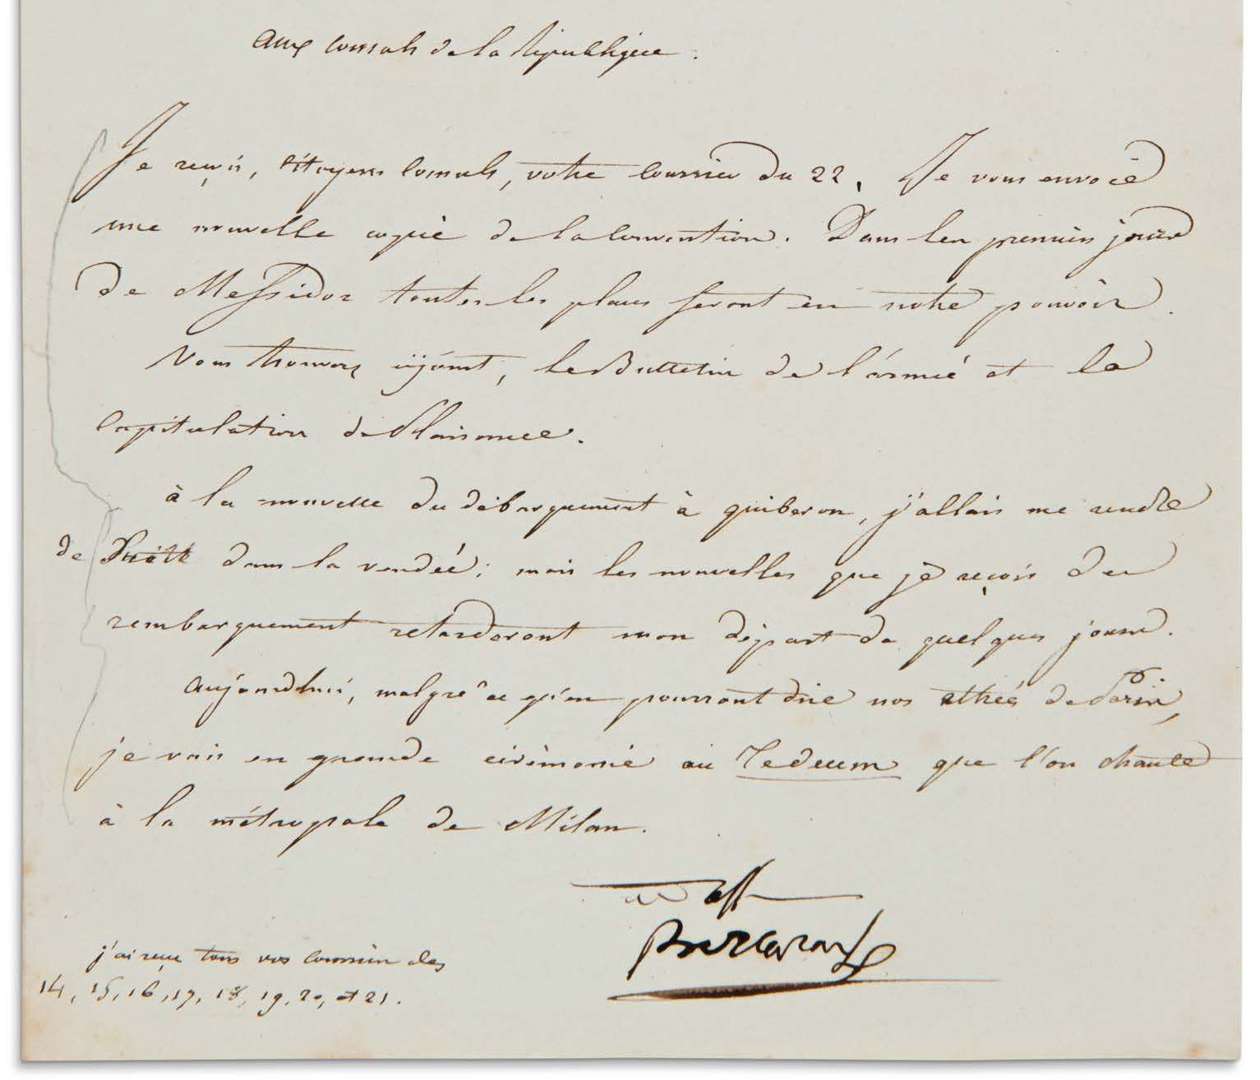 aux Consuls de la République.
Je reçois, Citoyens Consuls, votre Courrier du 22. Je vous envoiè
une nouvelle copiè de la Convention. Dans les premiers jours
de Messidor toutes les places seront en notre pouvoir.
Vous trouverez cyjoint, le Bulletin de l'armée et la
Capitulation de Plaisance.
à la nouvelle du débarquement à quiberon, j'allais me rendre
de dans la vendée; mais les nouvelles que je reçois du
rembarquement retarderont mon départ de quelques jours.
aujourdhui, malgré ce qu'en pourront dire nos athées de Paris,
je vais en grande cérémonie au Tedeum que l'on chante
à la métropole de Milan.
Bonaparte
j'ai reçu tous vos courriers des
14, 15, 16, 17, 18, 19, 20, et 21.